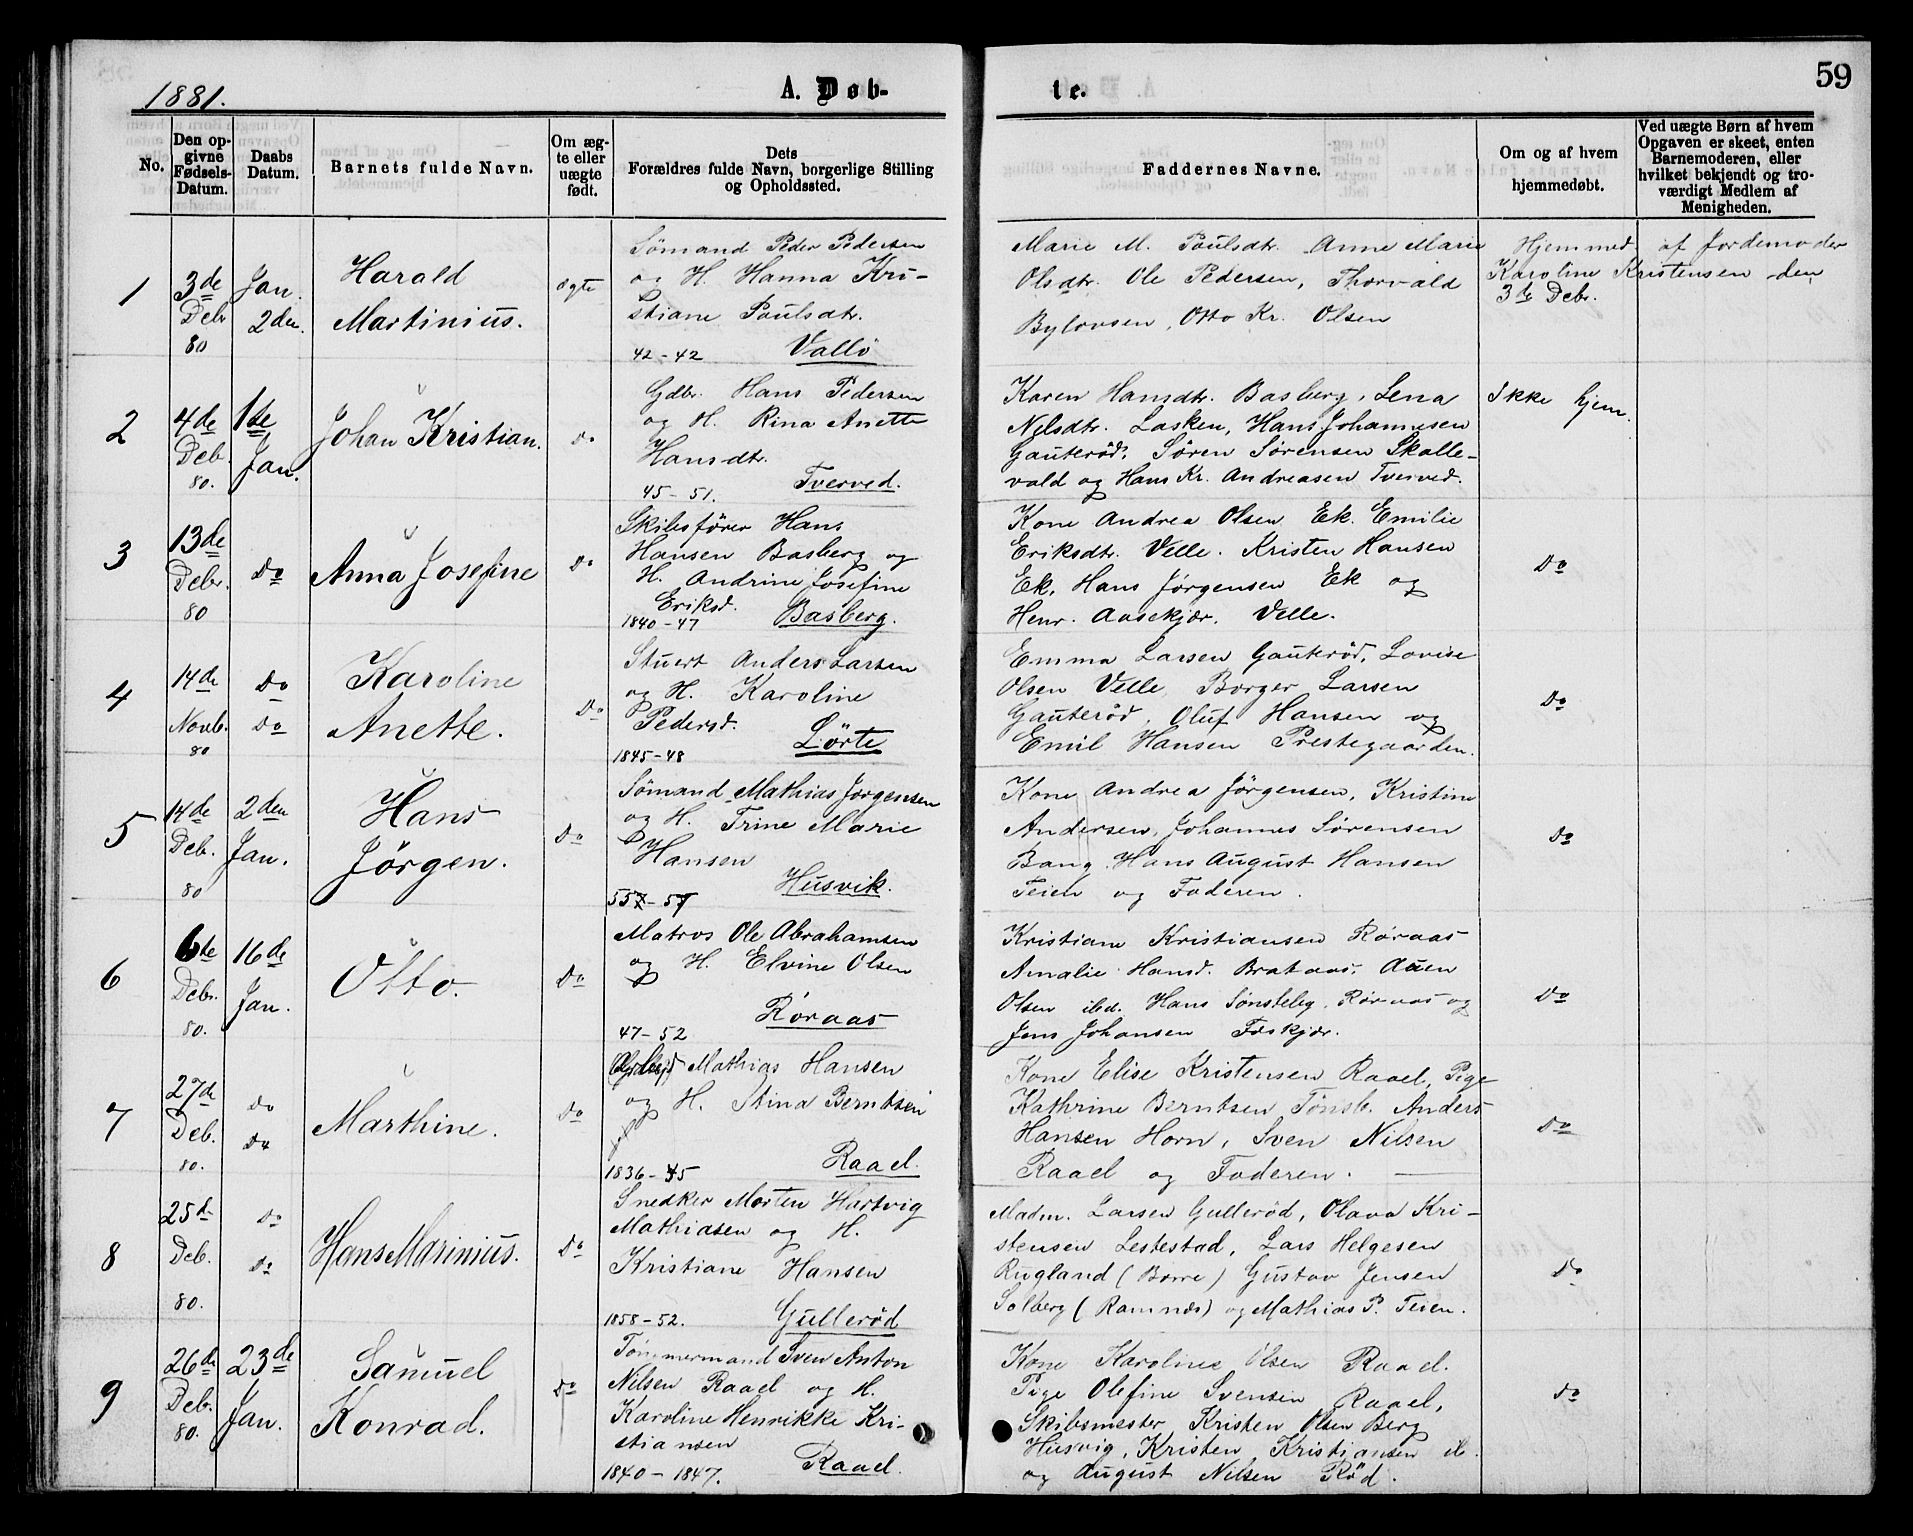 59
1881.
A. Døb-
te.
No.
Den op-
givne
Fødsels-
Datum.
Daabs
Datum.
Barnets fulde Navn.
Om æg-
te eller
uægte
født.
Dets
Forældres fulde Navn, borgerlige Stilling
og Opholdssted.
Faddernes Navne.
Om og af hvem
hjemmedøbt.
Ved uægte Børn af hvem
Opgaven er skeet, enten
Barnemoderen, eller
hvilket bekjendt og tro-
værdigt Medlem af
Menigheden.
1
3de
Debr
80
Jan.
2den
Harald
Martinius.
ægte
Sømand Peder Pedersen
og H. Hanna Kri-
stiane Poulsdtr.
42-42 Vallø
Marie M. Poulsdtr. Anne Marie
Olsdtr. Ole Pedersen, Thorvald
Bylovsen, Otto Kr. Olsen
Hjemmed. af Jordemoder
Karoline Kristensen den
3de Debr.
2
4de
Deb.
80.
1ste
Jan.
Johan Kristian.
do
Gdbr. Hans Pedersen
og H. Rina Anette
Hansdtr.
45-51. Tverved.
Karen Hansdtr. Basberg, Lena
Nilsdtr. Lasken, Hans Johannesen
Gauterød, Søren Sørensen Skalle-
vold og Hans Kr. Andreasen Tverved.
Ikke hjem.
3
13de
Debr.
80
Do
Anna Josefine
Do
Skibsfører Hans
Hansen Basberg og
H. Andrine Josefine
Eriksd.
1840-47 Basberg.
Kone Andrea Olsen Ek. Emilie
Eriksdtr. Velle. Kristen Hansen
Ek, Hans Jørgensen Ek og
Henr. Aasekjær. Velle.
Do
4
14de
Novb.
80
Do
Do
Karoline
Anette.
Do
Stuert Anders Larsen
og H. Karoline
Pedersd.
1845-48 Lørte
Emma Larsen Gauterød, Lovise
Olsen Velle, Borger Larsen
Gauterød, Oluf Hansen og
Emil Hansen Prestegaarden.
Do
5
14de
Deb.
80
2den
Jan.
Hans
Jørgen.
Do
Sømand Mathias Jørgensen
og H. Trine Marie
Hansen
Husvik.
Kone Andrea Jørgensen, Kristine
Andersen, Johannes Sørensen
Bang. Hans August Hansen
Teien og Faderen.
Do
6
6te
Debr.
80.
16de
Jan.
Otto.
Do
Matros Ole Abrahamsen
og H. Elvine Olsen
47-52 Røraas
Kristiane Kristiansen Røraas
Amalie Hansd. Brataas,
Olsen ibd. Hans Sønsteby, Røraas og
Jens Johansen Foskjær.
Do
7
27de
Deb.
80.
do
Do
Marthine.
Do
Mathias Hansen
og H. Stina Berntsen
1836-45 Raael.
Kone Elise Kristensen Raael, Pige
Kathrine Berntsen Tønsb. Anders
Hansen Horn, Sven Nilsen
Raael og Faderen.
Do
8
25de
Deb.
80.
Do
Do
Hans Marinius.
Do
Snedker Morten Hartvig
Mathiasen og H.
Kristiane Hansen
1858-52. Gullerød
Madm. Larsen Gullerød, Olava Kri-
stensen Lestestad, Lars Helgesen
Rugland (Borre) Gustav Jensen
Solberg (Ramnæs) og Mathias P. Teien.
Do
9
26de
Debr.
80.
23de
Jan.
Samuel
Konrad.
Do
Tømmermand Sven Anton
Nilsen Raael og H.
Karoline Henrikke Kri-
stiansen
1840-1847. Raael.
Kone Karoline Olsen Raael.
Pige Olefine Svensen Raael,
Skibsmester Kristen Olsen Berg
Husvig, Kristen Kristiansen ib.
og August Nilsen Rød.
do